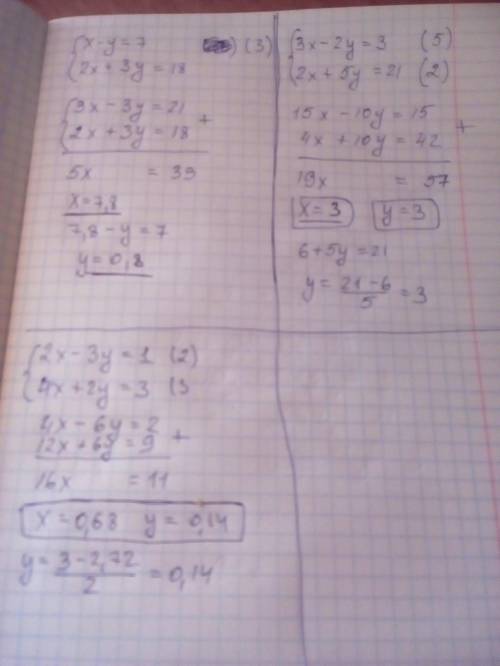 x-y=7 (3)
2x+3y=18
3x-3y=21
2x+3y=18 +
5x = 39
x=7,8
7,8-y=7
y=0,8
3x-2y=3 (5)
2x+5y=21 (2)
15x-10y=15
4x+10y=42 +
19x = 57
x=3 y=3
6+5y=21
y=21-6/5=3
2x-3y=1 (2)
4x+2y=3 (3
4x-6y=2
12x+6y=9 +
16x = 11
x=0,68 y=0,14
y=3-2,72/2=0,14